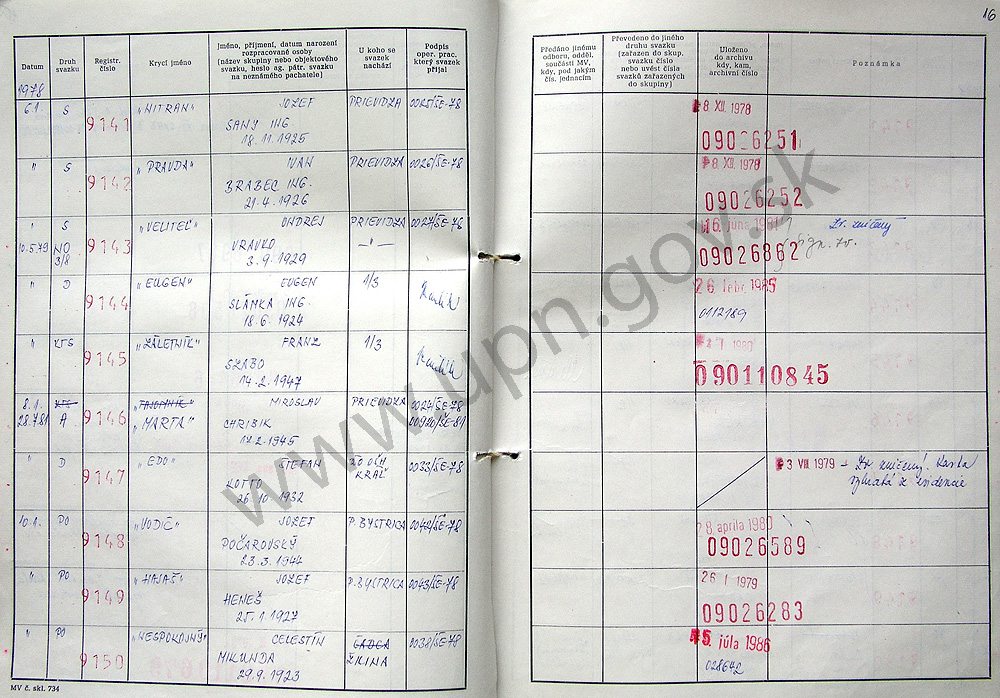 16
Datum
Druh svazku
Registr. číslo
Krycí jméno
Jméno, příjmení, datum narození
rozpracované osoby
(název skupiny nebo objektového
svazku, heslo ag. pátr. svazku
na neznámého pachatele)
U koho se
svazek
nachází
Podpis
oper. prac.
který svazek
přijal
Předáno jinému
odboru, odděl.
součásti MV,
kdy, pod jakým
čís. jednacím
Převedeno do jiného
druhu svazku
(zařazen do skup.
svazku číslo
nebo uvést čísla
svazků zařazených
do skupiny)
Uloženo
do archivu
kdy, kam,
archivní číslo
Poznámka
1978
6.1. S 9141 "NITRAN" JOZEF PRIEVIDZA 0025/ŠE-78
SANY ING.
18.11.1925
8 XII. 1978
09026251
" S 9142 "PRAVDA" IVAN PRIEVIDZA 0026/ŠE-78
BRABEC ING.
21.4.1926
8 XII. 1978
09026252
" S 9143 "VELITEĽ" ONDREJ PRIEVIDZA 0027/ŠE-78
10.5.79 NO 3/8 VRAVKO -"-
3.9.1929
16. júna 1981
Zv. zničený
Sign. zv.
09026862
" D 9144 "EUGEN" EUGEN 1/3
SLÁMKA ING.
18.6.1924
26 febr. 1985
0112189
" KTS 9145 "ZÁLETNÍK" FRANZ 1/3
SZABO
14.2.1947
1980
090110845
8.1. KTS 9146 "TAJOMNÍK" MIROSLAV PRIEVIDZA 0024/ŠE-78
28.7.81 A "MARTA" CHRIBIK 00920/ŠE-81
17.2.1945
" D 9147 "EDO" ŠTEFAN 0033/ŠE-78
KOTTO
26.10.1932
3 VIII 1979 – Zv. zničený. Karta
vyňatá z evidencie
10.1. PO 9148 "VODIČ" JOZEF P. BYSTRICA 0042/ŠE-78
POČAROVSKÝ
23.3.1944
28 apríla 1980
09026589
" PO 9149 "HAJAŠ" JOZEF P. BYSTRICA 0043/ŠE-78
HENEŠ
25.1.1927
26 I 1979
09026283
" PO 9150 "NESPOKOJNÝ" CELESTÍN ČADCA 0038/ŠE-78
MIKUNDA ŽILINA
29.9.1923
5. júla 1986
028642
MV č. skl. 734
www.upn.gov.sk